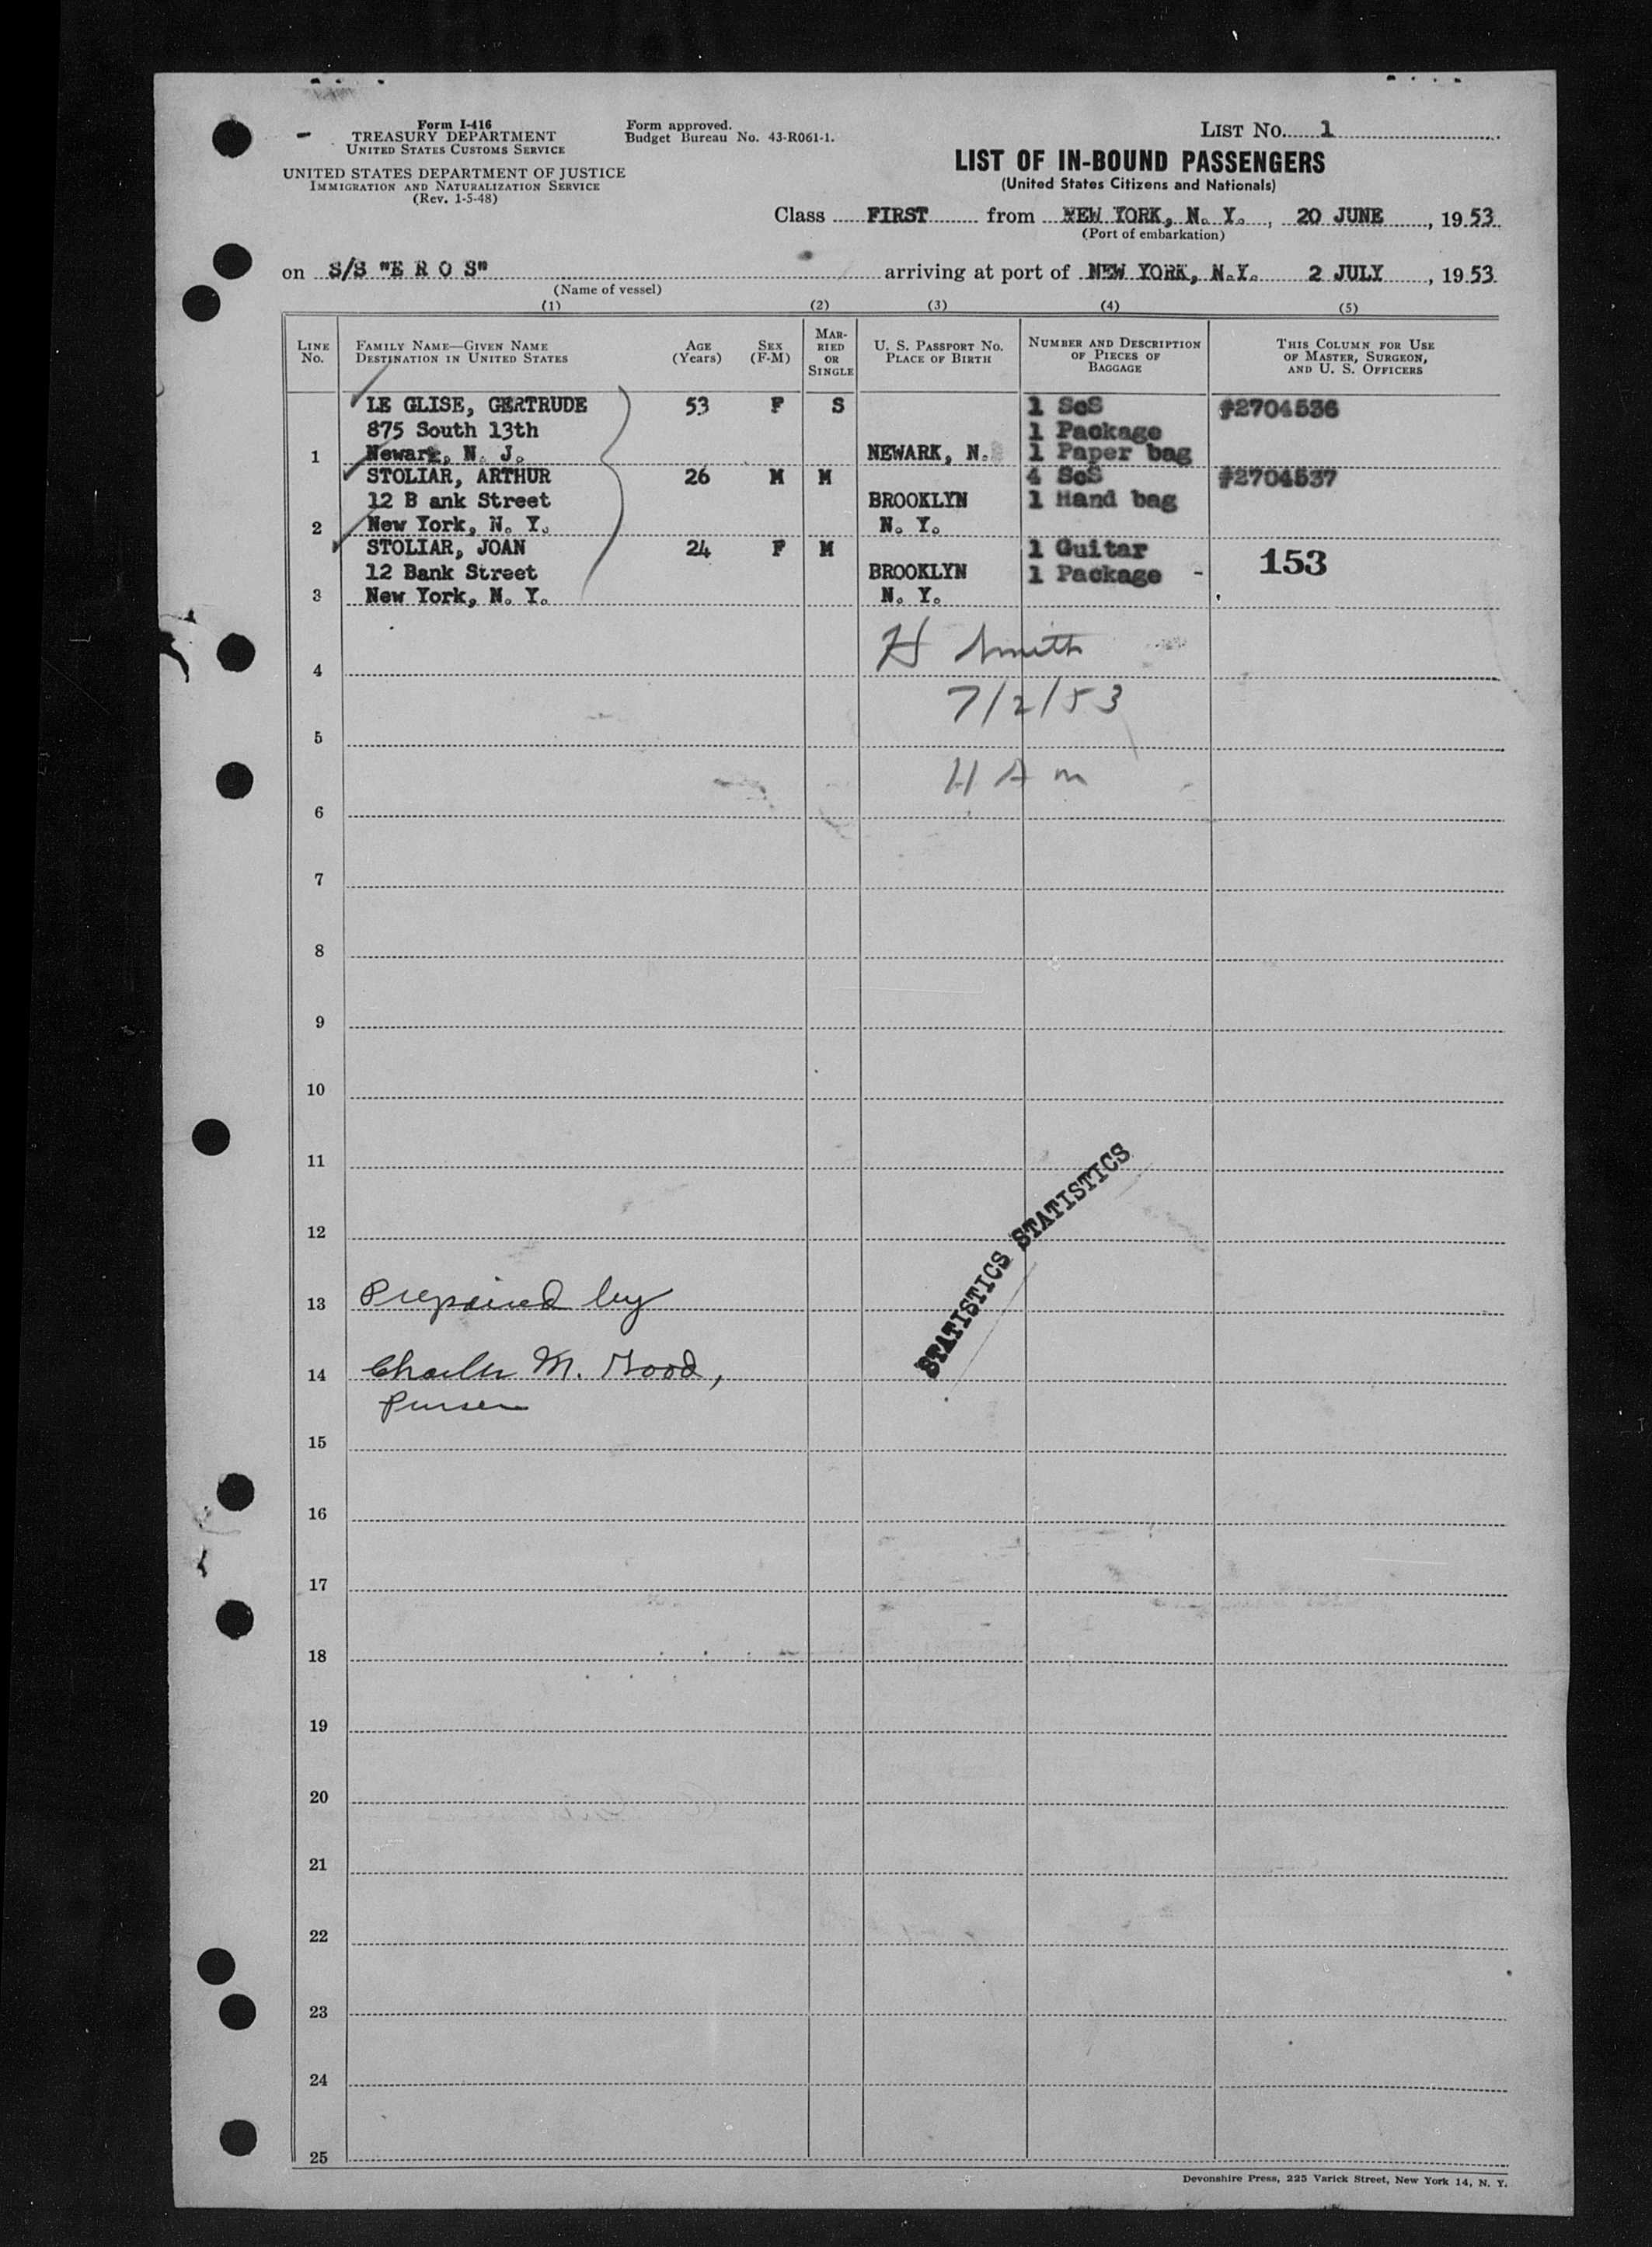 Form I-416
TREASURY DEPARTMENT
UNITED STATES CUSTOMS SERVICE
UNITED STATES DEPARTMENT OF JUSTICE
IMMIGRATION AND NATURALIZATION SERVICE
(Rev. 1-5-48)
Form approved.
Budget Bureau No. 43-R061-1.
LIST NO. 1
LIST OF IN-BOUND PASSENGERS
(United States Citizens and Nationals)
Class FIRST from NEW YORK, N. Y., 20 JUNE, 1953
(Port of embarkation)
on S/S "E R O S" arriving at port of NEW YORK, N.Y. 2 JULY, 1953
(Name of vessel)
(1) (2) (3) (4) (5)
LINE NO.
FAMILY NAME—GIVEN NAME
DESTINATION IN UNITED STATES
AGE (Years)
SEX (F-M)
MARRIED OR SINGLE
U. S. PASSPORT NO.
PLACE OF BIRTH
NUMBER AND DESCRIPTION OF PIECES OF BAGGAGE
THIS COLUMN FOR USE OF MASTER, SURGEON, AND U. S. OFFICERS
LE GLISE, GERTRUDE 53 F S 1 ScS #2704536
875 South 13th 1 Package
1 Newark, N. J. NEWARK, N. 1 Paper bag
STOLIAR, ARTHUR 26 M M 4 ScS #2704537
12 B ank Street BROOKLYN 1 Hand bag
2 New York, N. Y. N. Y.
STOLIAR, JOAN 24 F M 1 Guitar 153
12 Bank Street BROOKLYN 1 Package -
3 New York, N. Y. N. Y.
H Smith
4
7/2/53
5
H A m
6
7
8
9
10
11
12
STATISTICS STATISTICS
13 Prepaired by
14 Charles M. Good,
Purser
15
16
17
18
19
20
21
22
23
24
25
Devonshire Press, 225 Varick Street, New York 14, N. Y.